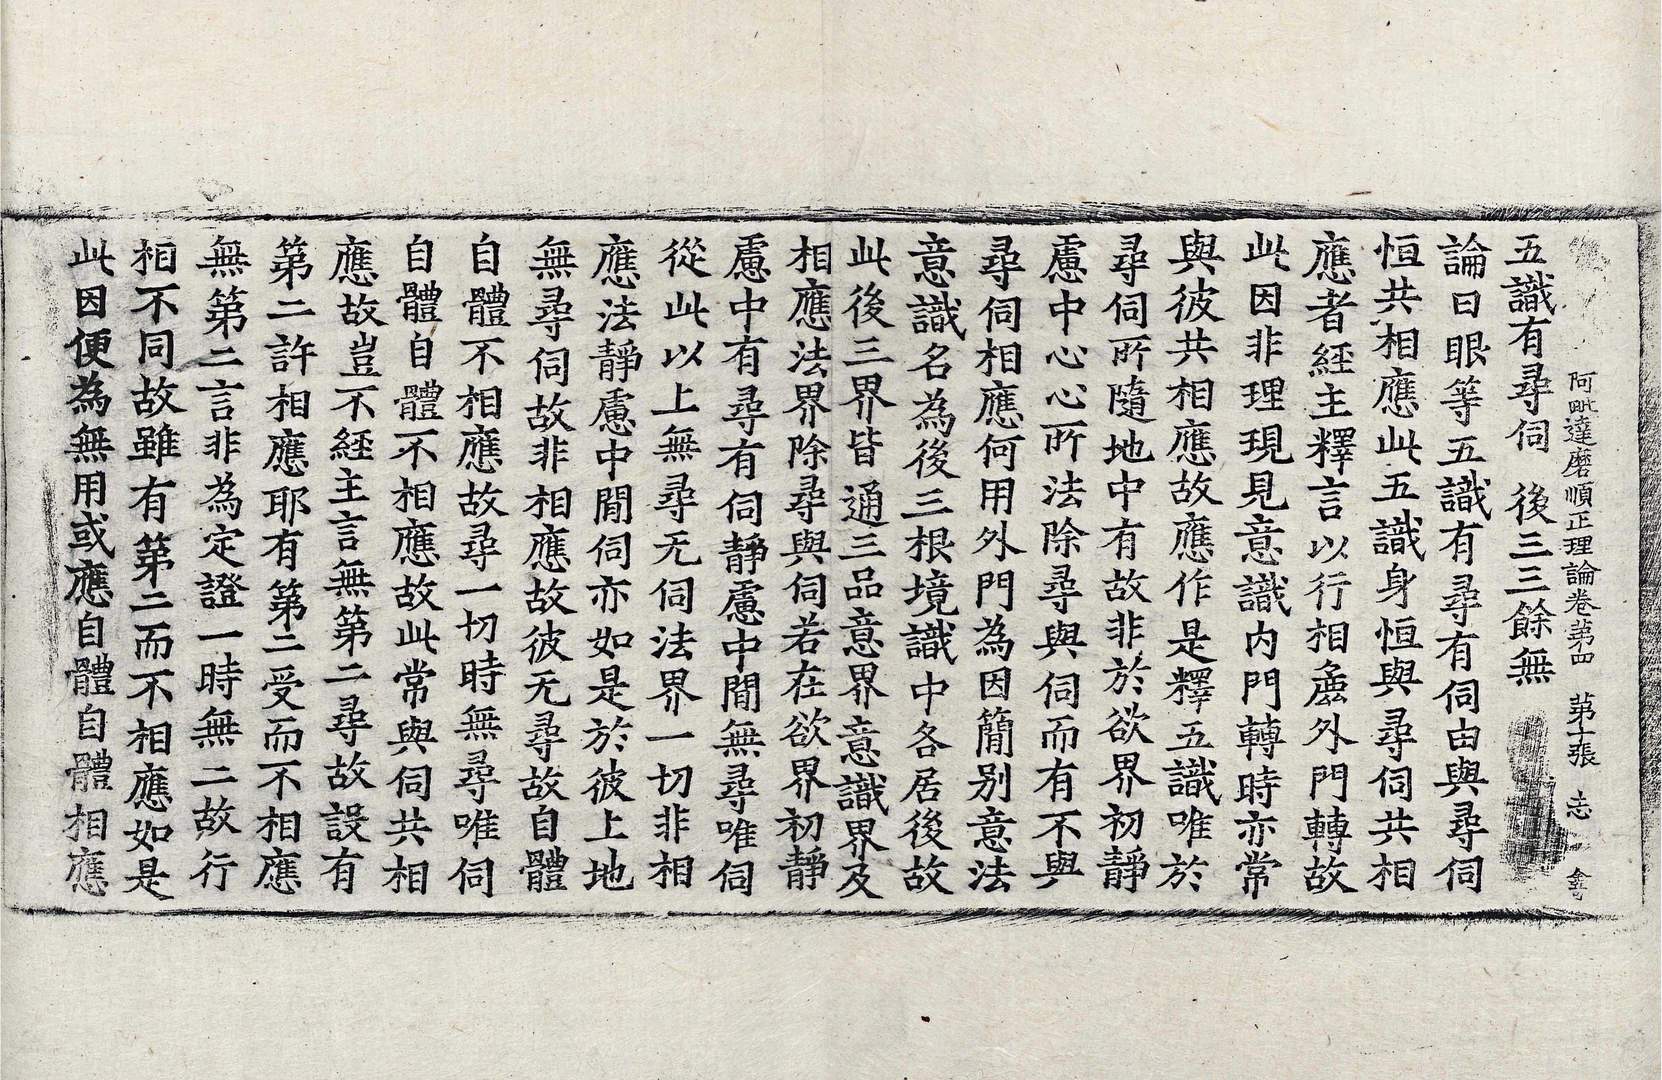 阿毗達磨順正理論卷第四　第十張　志
五識有尋伺　後三三餘無
論曰眼等五識有尋有伺由與尋伺
恒共相應此五識身恒與尋伺共相
應者經主釋言以行相麁外門轉故
此因非理現見意識內門轉時亦常
與彼共相應故應作是釋五識唯於
尋伺所隨地中有故非於欲界初靜
慮中心心所法除尋與伺而有不與
尋伺相應何用外門為因簡別意法
意識名為後三根境識中各居後故
此後三界皆通三品意界意識界及
相應法界除尋與伺若在欲界初靜
慮中有尋有伺靜慮中間無尋唯伺
從此以上無尋无伺法界一切非相
應法靜慮中間伺亦如是於彼上地
無尋伺故非相應故彼无尋故自體
自體不相應故尋一切時無尋唯伺
自體自體不相應故此常與伺共相
應故豈不經主言無第二尋故設有
第二許相應耶有第二受而不相應
無第二言非為定證一時無二故行
相不同故雖有第二而不相應如是
此因便為無用或應自體自體相應